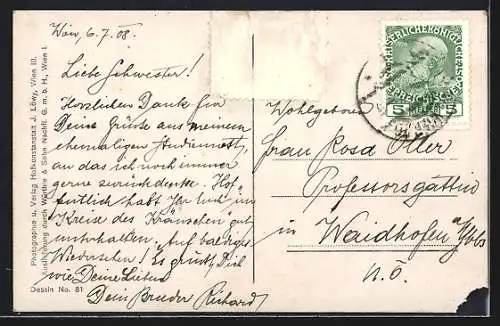 Wien, 6.7.08.
Liebe Schwester!
Herzlichen Dank für
Deine Grüße aus meinem
ehemaligen
an das ich noch immer
gerne zurückdenke. Hof-
fentlich habt Ihr Euch im
Kreise des Kränzchen gut
unterhalten. Auf baldiges
Wiedersehen! Es grüßt Dich
wie Deine Lieben
Dein Bruder Richard
Wohlgeboren
Frau Rosa
Professorsgattin
in Waidhofen a/Ybbs
N.Ö.
KAISERLICHE KÖNIGLICHE
5 5
Photographie u. Verlag Hofkunstanstalt J. Löwy, Wien III.
durch & Sohn Nachfl. G. m. b. H., Wien I.
Dessin No. 81